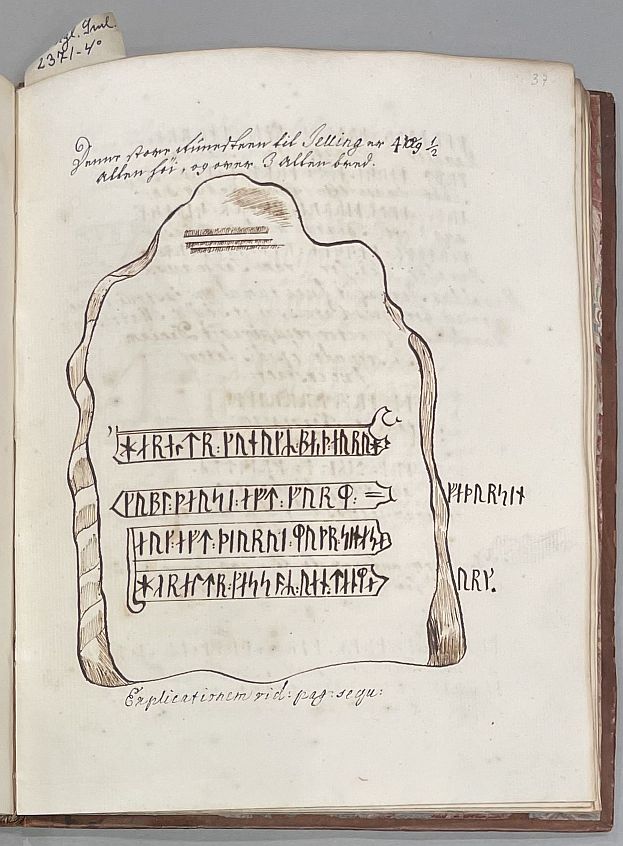 gl. Sml.
2371-4°
37
Denne store Runesteen til Jelling er 4 og ½
allen höi, og over 3 allen bred.
ᚼᛅᚱᛅᛚᛏᚱ:ᚴᚢᚾᚢᚴᛦ:ᛒᛅᚦ:ᚴᛅᚢᚱᚢᛅ
ᚴᚢᛒᛚ:ᚦᛅᚢᛋᛁ:ᛅᚠᛏ:ᚴᚢᚱᛘ: ᚠᛅᚦᚢᚱᛋᛁᚾ
ᛅᚢᚴ:ᛅᚠᛏ:ᚦᛁᚢᚱᚢᛁ:ᛘᚢᚦᚱ:ᛋᛁᚾᛅ
ᚼᛅᚱᛅᛚᛏᚱ:ᚴᛅᛋᛋᛅᛦ:ᚢᛅᚾ:ᛏᛅᚾᛘᛅ ᚢᚱᚴ.
Explicationem vid: pag: sequ: